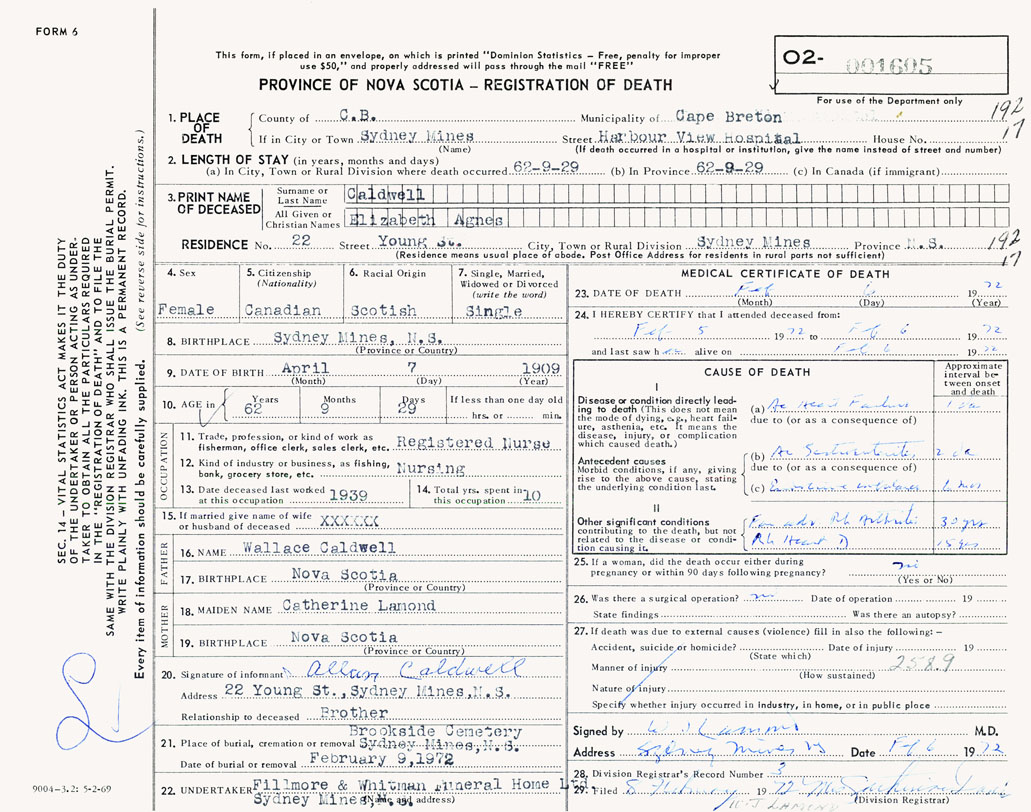 FORM 6
This form, if placed in an envelope, on which is printed "Dominion Statistics – Free, penalty for improper
use $50," and properly addressed will pass through the mail "FREE"
PROVINCE OF NOVA SCOTIA – REGISTRATION OF DEATH
O2- 001605
For use of the Department only
192
17
1. PLACE OF DEATH
County of C.B. Municipality of Cape Breton
If in City or Town Sydney Mines Street Harbour View Hospital House No.
(Name) (If death occurred in a hospital or institution, give the name instead of street and number)
2. LENGTH OF STAY (in years, months and days)
(a) In City, Town or Rural Division where death occurred 62-9-29 (b) In Province 62-9-29 (c) In Canada (if immigrant)
3. PRINT NAME OF DECEASED
Surname or Last Name Caldwell
All Given or Christian Names Elizabeth Agnes
RESIDENCE No. 22 Street Young St. City, Town or Rural Division Sydney Mines Province N.S.
(Residence means usual place of abode. Post Office Address for residents in rural parts not sufficient)
192
17
4. Sex
Female
5. Citizenship
(Nationality)
Canadian
6. Racial Origin
Scotish
7. Single, Married,
Widowed or Divorced
(write the word)
Single
8. BIRTHPLACE Sydney Mines, N.S.
(Province or Country)
9. DATE OF BIRTH April 7 1909
(Month) (Day) (Year)
10. AGE in Years Months Days If less than one day old
62 9 29 hrs. or min.
OCCUPATION
11. Trade, profession, or kind of work as
fisherman, office clerk, sales clerk, etc. Registered Nurse
12. Kind of industry or business, as fishing,
bank, grocery store, etc. Nursing
13. Date deceased last worked
at this occupation 1939
14. Total yrs. spent in
this occupation 10
15. If married give name of wife
or husband of deceased XXXXXX
FATHER
16. NAME Wallace Caldwell
17. BIRTHPLACE Nova Scotia
(Province or Country)
MOTHER
18. MAIDEN NAME Catherine Lamond
19. BIRTHPLACE Nova Scotia
(Province or Country)
20. Signature of informant Allan Caldwell
Address 22 Young St., Sydney Mines, N.S.
Relationship to deceased Brother
Brookside Cemetery
21. Place of burial, cremation or removal Sydney Mines, N.S.
Date of burial or removal February 9, 1972
22. UNDERTAKER Fillmore & Whitman Funeral Home Ltd
Sydney Mines, N.S.
(Name and address)
MEDICAL CERTIFICATE OF DEATH
23. DATE OF DEATH Feb 6 1972
(Month) (Day) (Year)
24. I HEREBY CERTIFY that I attended deceased from:
Feb 5 1972 to Feb 6 1972
and last saw h alive on Feb 6 1972
CAUSE OF DEATH
Approximate interval between onset and death
I
Disease or condition directly lead-
ing to death (This does not mean
the mode of dying, e.g., heart fail-
ure, asthenia, etc. It means the
disease, injury, or complication
which caused death.)
(a) Ac Heart Failure
due to (or as a consequence of)
Antecedent causes
Morbid conditions, if any, giving
rise to the above cause, stating
the underlying condition last.
(b) Ac
due to (or as a consequence of)
(c)
II
Other significant conditions
contributing to the death, but not
related to the disease or condi-
tion causing it.
Rh Arthritis 30 yrs
Rh Heart D 15 yrs
25. If a woman, did the death occur either during
pregnancy or within 90 days following pregnancy? no
(Yes or No)
26. Was there a surgical operation? no Date of operation 19
State findings Was there an autopsy?
27. If death was due to external causes (violence) fill in also the following: –
Accident, suicide or homicide? Date of injury 19
(State which)
Manner of injury 2589
(How sustained)
Nature of injury
Specify whether injury occurred in industry, in home, or in public place
Signed by M.D.
Address Sydney Mines NS Date Feb 6 1972
28. Division Registrar's Record Number 3
29. Filed 8 February 1972
(Division Registrar)
W. J LAMOND
SEC. 14 – VITAL STATISTICS ACT MAKES IT THE DUTY
OF THE UNDERTAKER OR PERSON ACTING AS UNDER-
TAKER TO OBTAIN ALL THE PARTICULARS REQUIRED
IN THE "REGISTRATION OF DEATH" AND TO FILE THE
SAME WITH THE DIVISION REGISTRAR WHO SHALL ISSUE THE BURIAL PERMIT.
WRITE PLAINLY WITH UNFADING INK. THIS IS A PERMANENT RECORD.
Every item of information should be carefully supplied. (See reverse side for instructions.)
9004-3.2: 5-2-69